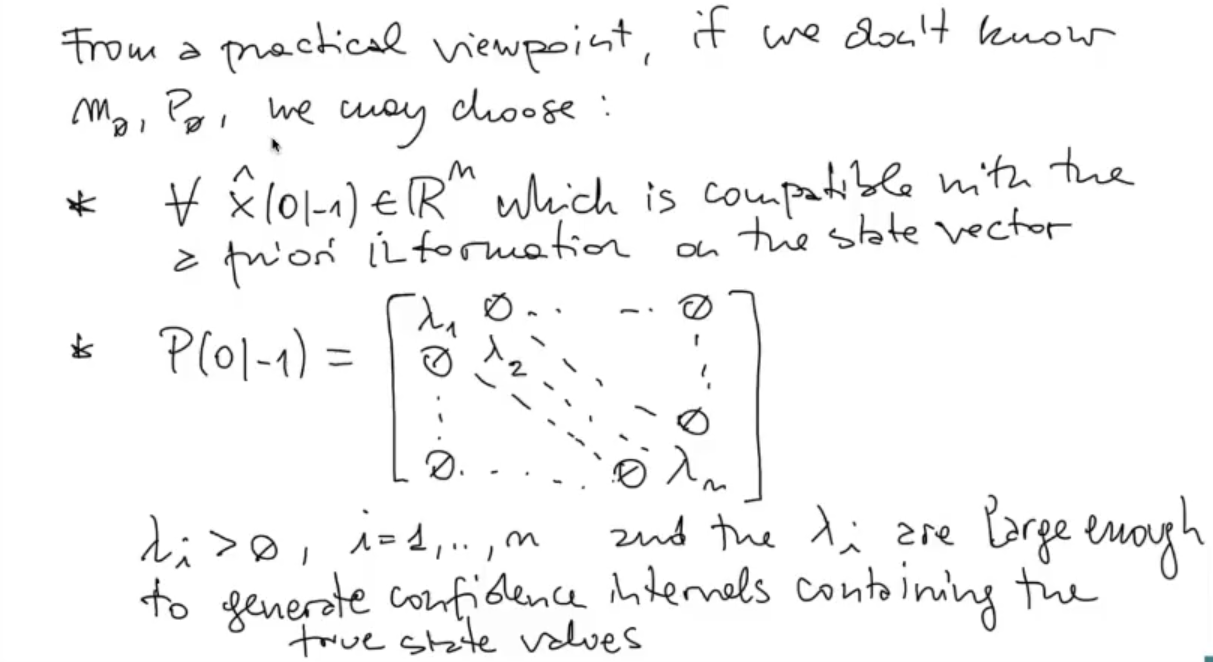 From a practical viewpoint, if we don't know
m₀, P₀, we may choose :
* ∀ x̂(0|-1) ∈ ℝⁿ which is compatible with the
a priori information on the state vector
* P(0|-1) = [ λ₁ 0 .. -.. 0
0 λ₂
0
0 . . . . 0 λₙ ]
λᵢ > 0, i=1,..,n and the λᵢ are large enough
to generate confidence intervals containing the
true state values